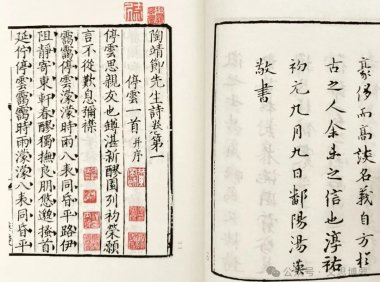 豪侈而高談名義自方於
古之人余未之信也淳祐
初元九月九日鄱陽湯漢
敬書
陶靖節先生詩卷第一
停雲一首并序
停雲思親友也罇湛新醪園列初榮願
言不從歎息彌襟
靄靄停雲濛濛時雨八表同昏平路伊
阻靜寄東軒春醪獨撫良朋悠邈搔首
延佇停雲靄靄時雨濛濛八表同昏平
公众号